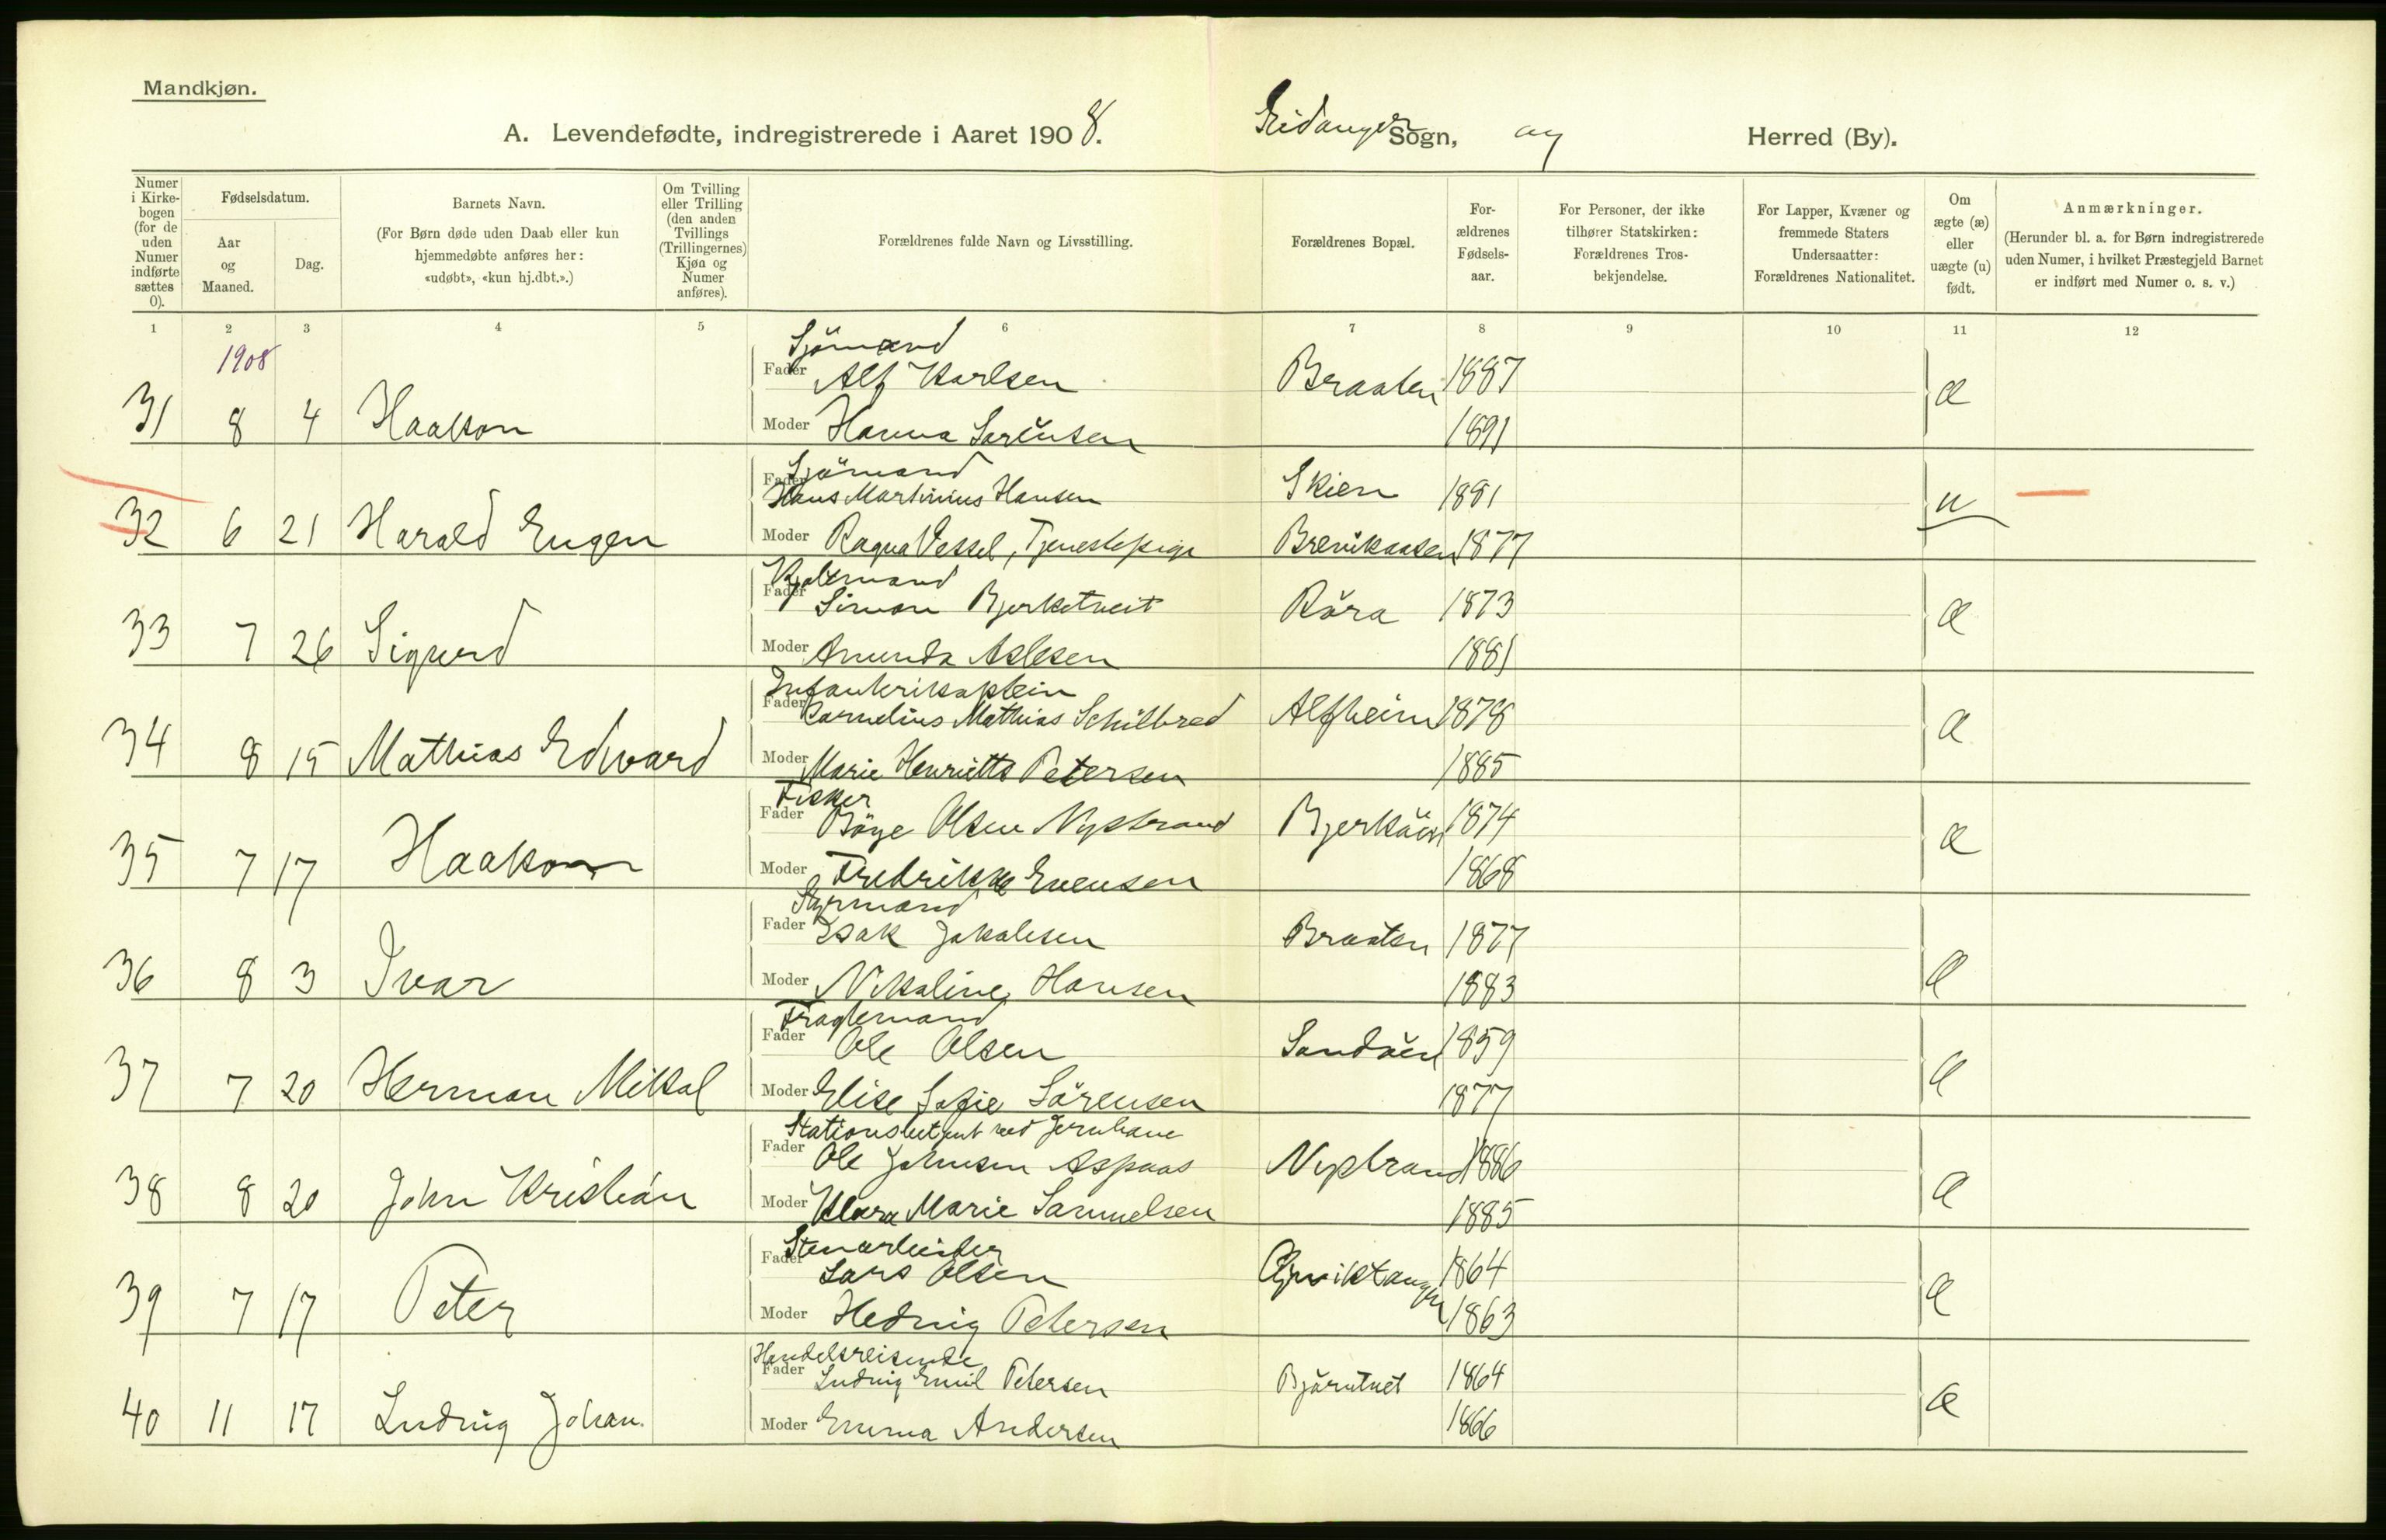 Mandkjøn.
A. Levendefødte, indregistrerede i Aaret 1908. Eidanger Sogn, og Herred (By).
Numer i Kirkebogen (for de uden Numer indførte sættes 0).
Fødselsdatum.
Aar og Maaned.
Dag.
Barnets Navn.
(For Børn døde uden Daab eller kun hjemmedøbte anføres her: «udøbt», «kun hj.dbt.».)
Om Tvilling eller Trilling (den anden Tvillings (Trillingernes) Kjøn og Numer anføres).
Forældrenes fulde Navn og Livsstilling.
Forældrenes Bopæl.
Forældrenes Fødselsaar.
For Personer, der ikke tilhører Statskirken: Forældrenes Trosbekjendelse.
For Lapper, Kvæner og fremmede Staters Undersaatter: Forældrenes Nationalitet.
Om ægte (æ) eller uægte (u) født.
Anmærkninger.
(Herunder bl. a. for Børn indregistrerede uden Numer, i hvilket Præstegjeld Barnet er indført med Numer o. s. v.)
1 2 3 4 5 6 7 8 9 10 11 12
1908
Sjömand
Fader Alf Karlsen Braaten 1887
31 8 4 Haakon æ
Moder Hanna Sörensen 1891
Sjömand
Fader Hans Martinius Hansen Skien 1881
32 6 21 Harald Eugen u
Moder Ragna Vessel, Tjenestepige Brevikaasen 1877
Fader Simon Bjerketveit Röra 1873
33 7 26 Sigurd æ
Moder Amunda Aslesen 1881
Infanterikaptein
Fader Cornelius Mathias Schilbred Alfheim 1878
34 8 15 Mathias Edvard æ
Moder Marie Henriette Petersen 1885
Fisker
Fader Böye Olsen Nystrand Bjerköen 1874
35 7 17 Haakon æ
Moder Fredrikke Evensen 1868
Styrmand
Fader Isak Jakobsen Braaten 1877
36 8 3 Ivar æ
Moder Nikoline Hansen 1883
Fragtemand
Fader Ole Olsen Sandöen 1859
37 7 20 Herman Mikal æ
Moder Elise Sofie Sörensen 1877
Stationsbetjent ved Jernbane
Fader Ole Johnsen Aspaas Nystrand 1886
38 8 20 John Kristian æ
Moder Klara Marie Samuelsen 1885
Stenarbeider
Fader Lars Olsen 1864
39 7 17 Peter æ
Moder Hedvig Petersen 1863
Handelsreisende
Fader Ludvig Emil Petersen Björntvet 1864
40 11 17 Ludvig Johan. æ
Moder Emma Andersen 1866